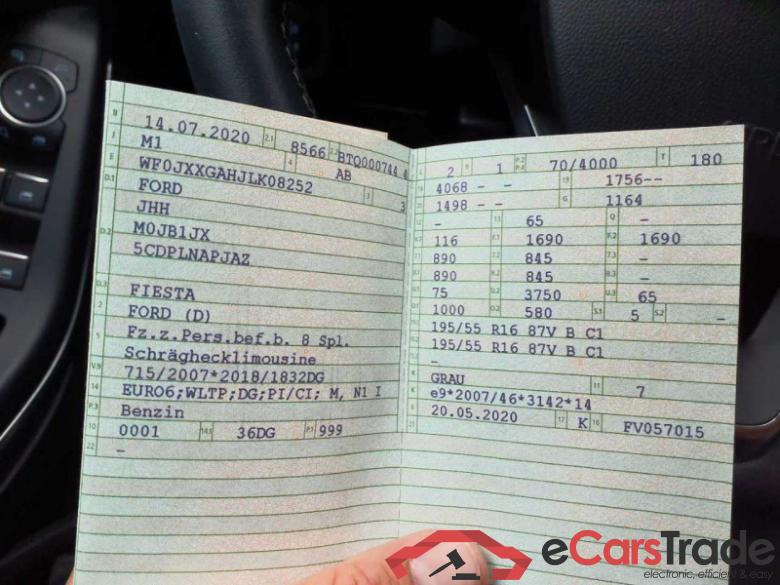 B 14.07.2020 2.1 8566 2.2 BTQ000744 4
J M1 4 AB
E WF0JXXGAHJLK08252 3 3
D.1 FORD
JHH
D.2 M0JB1JX
5CDPLNAPJAZ
D.3 FIESTA
2 FORD (D)
5 Fz.z.Pers.bef.b. 8 Spl.
Schräghecklimousine
V.9 715/2007*2018/1832DG
14 EURO6;WLTP;DG;PI/CI; M, N1 I
P.3 Benzin
10 0001 14.1 36DG P.1 999
22 –
2 1 P.2 P.4 70/4000 T 180
4068 – – 19 1756--
1498 – – G 1164
– 13 65 Q –
116 F.1 1690 F.2 1690
890 7.2 845 7.3 –
890 8.2 845 8.3 –
75 U.2 3750 U.3 65
1000 O.2 580 S.1 5 S.2 –
195/55 R16 87V B C1
195/55 R16 87V B C1
–
R GRAU 11 7
K e9*2007/46*3142*14
6 20.05.2020 17 K 16 FV057015
21
eCarsTrade
electronic, efficient & easy